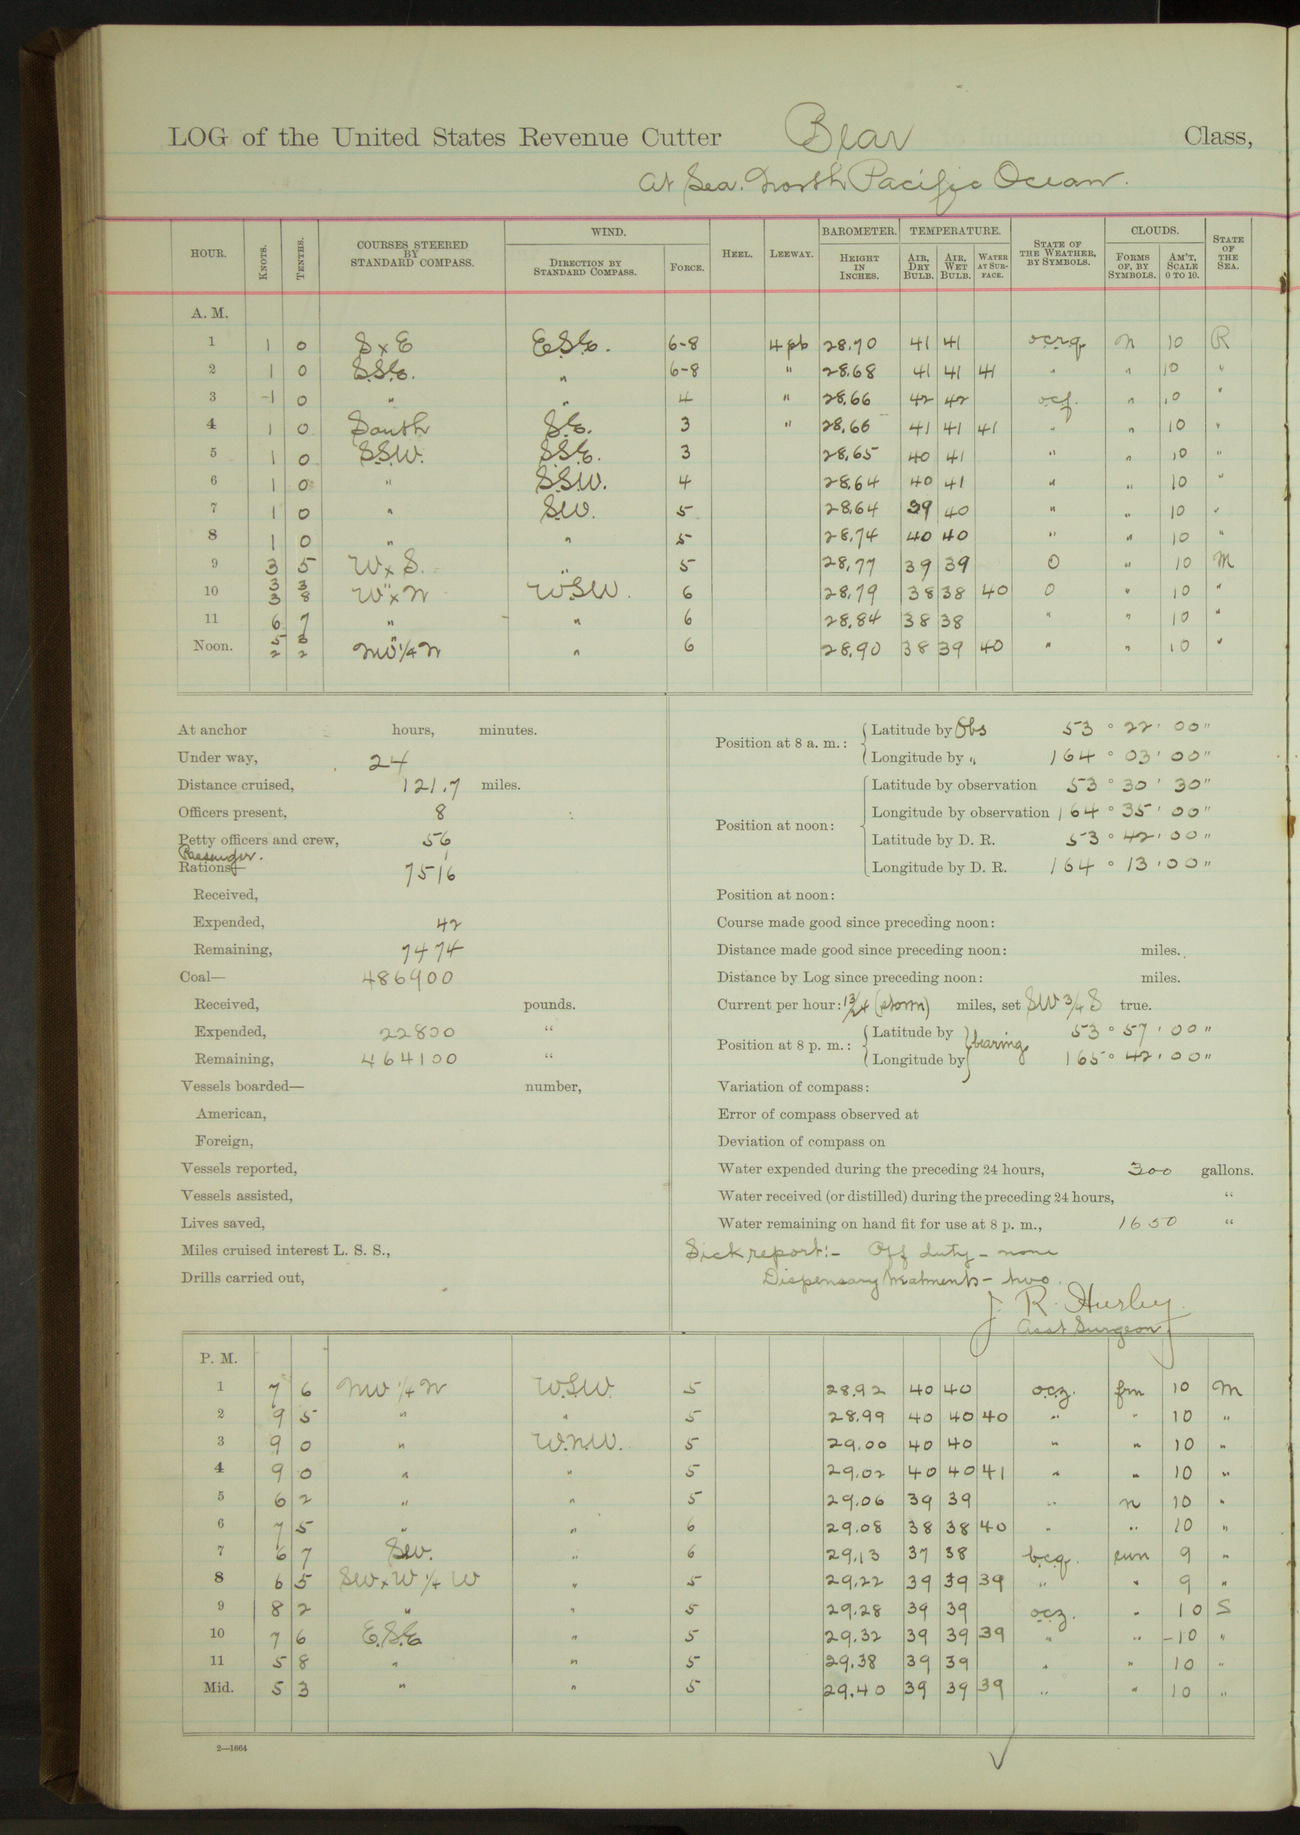 LOG of the United States Revenue Cutter Bear Class,
At Sea. North Pacific Ocean.
HOUR. KNOTS. TENTHS. COURSES STEERED BY STANDARD COMPASS. WIND. DIRECTION BY STANDARD COMPASS. FORCE. HEEL. LEEWAY. BAROMETER. HEIGHT IN INCHES. TEMPERATURE. AIR, DRY BULB. AIR, WET BULB. WATER AT SURFACE. STATE OF THE WEATHER, BY SYMBOLS. CLOUDS. FORMS OF, BY SYMBOLS. AM'T, SCALE 0 TO 10. STATE OF THE SEA.
A. M.
1 1 0 SxE ESE. 6-8 4 pb 28.70 41 41 ocrq n 10 R
2 1 0 SSE. " 6-8 " 28.68 41 41 41 " " 10 "
3 1 0 " " 4 " 28.66 42 42 ocf. " 10 "
4 1 0 South SE. 3 " 28.66 41 41 41 " " 10 "
5 1 0 SSW. SSE. 3 28.65 40 41 " " 10 "
6 1 0 " SSW. 4 28.64 40 41 " " 10 "
7 1 0 " SW. 5 28.64 39 40 " " 10 "
8 1 0 " " 5 28.74 40 40 " " 10 "
9 3 5 WxS. " 5 28.77 39 39 O " 10 M
10 3 3 3 8 " WxN WSW. 6 28.79 38 38 40 O " 10 "
11 6 7 " " 6 28.84 38 38 " " 10 "
Noon. 5 3 2 2 " NW 1/4 N " 6 28.90 38 39 40 " " 10 "
At anchor hours, minutes.
Under way, 24
Distance cruised, 121.7 miles.
Officers present, 8
Petty officers and crew, 56
Passenger. 1
Rations— 7516
Received,
Expended, 42
Remaining, 7474
Coal— 486900
Received, pounds.
Expended, 22800 "
Remaining, 464100 "
Vessels boarded— number,
American,
Foreign,
Vessels reported,
Vessels assisted,
Lives saved,
Miles cruised interest L. S. S.,
Drills carried out,
Position at 8 a. m.: Latitude by Obs 53 ° 22 ' 00 "
Longitude by " 164 ° 03 ' 00 "
Position at noon: Latitude by observation 53 ° 30 ' 30 "
Longitude by observation 164 ° 35 ' 00 "
Latitude by D. R. 53 ° 42 ' 00 "
Longitude by D. R. 164 ° 13 ' 00 "
Position at noon:
Course made good since preceding noon:
Distance made good since preceding noon: miles.
Distance by Log since preceding noon: miles.
Current per hour: (storm) miles, set SW 3/4 S true.
Position at 8 p. m.: Latitude by bearing 53 ° 57 ' 00 "
Longitude by 165 ° 42 ' 00 "
Variation of compass:
Error of compass observed at
Deviation of compass on
Water expended during the preceding 24 hours, 300 gallons.
Water received (or distilled) during the preceding 24 hours, "
Water remaining on hand fit for use at 8 p. m., 1650 "
Sick report:- Off duty - none
Dispensary treatments - two.
J. R. Hurley
Asst Surgeon
P. M.
1 7 6 NW 1/4 N WSW. 5 28.92 40 40 ocz. 10 M
2 9 5 " " 5 28.99 40 40 40 " " 10 "
3 9 0 " WNW. 5 29.00 40 40 " " 10 "
4 9 0 " " 5 29.02 40 40 41 " " 10 "
5 6 2 " " 5 29.06 39 39 " n 10 "
6 7 5 " " 6 29.08 38 38 40 " " 10 "
7 6 7 SW. " 6 29.13 37 38 bcq. cun 9 "
8 6 5 SWxW 1/4 W " 5 29.22 39 39 39 " " 9 "
9 8 2 " " 5 29.28 39 39 ocz. " 10 S
10 7 6 E.S.E " 5 29.32 39 39 39 " " 10 "
11 5 8 " " 5 29.38 39 39 " " 10 "
Mid. 5 3 " " 5 29.40 39 39 39 " " 10 "
2—1664